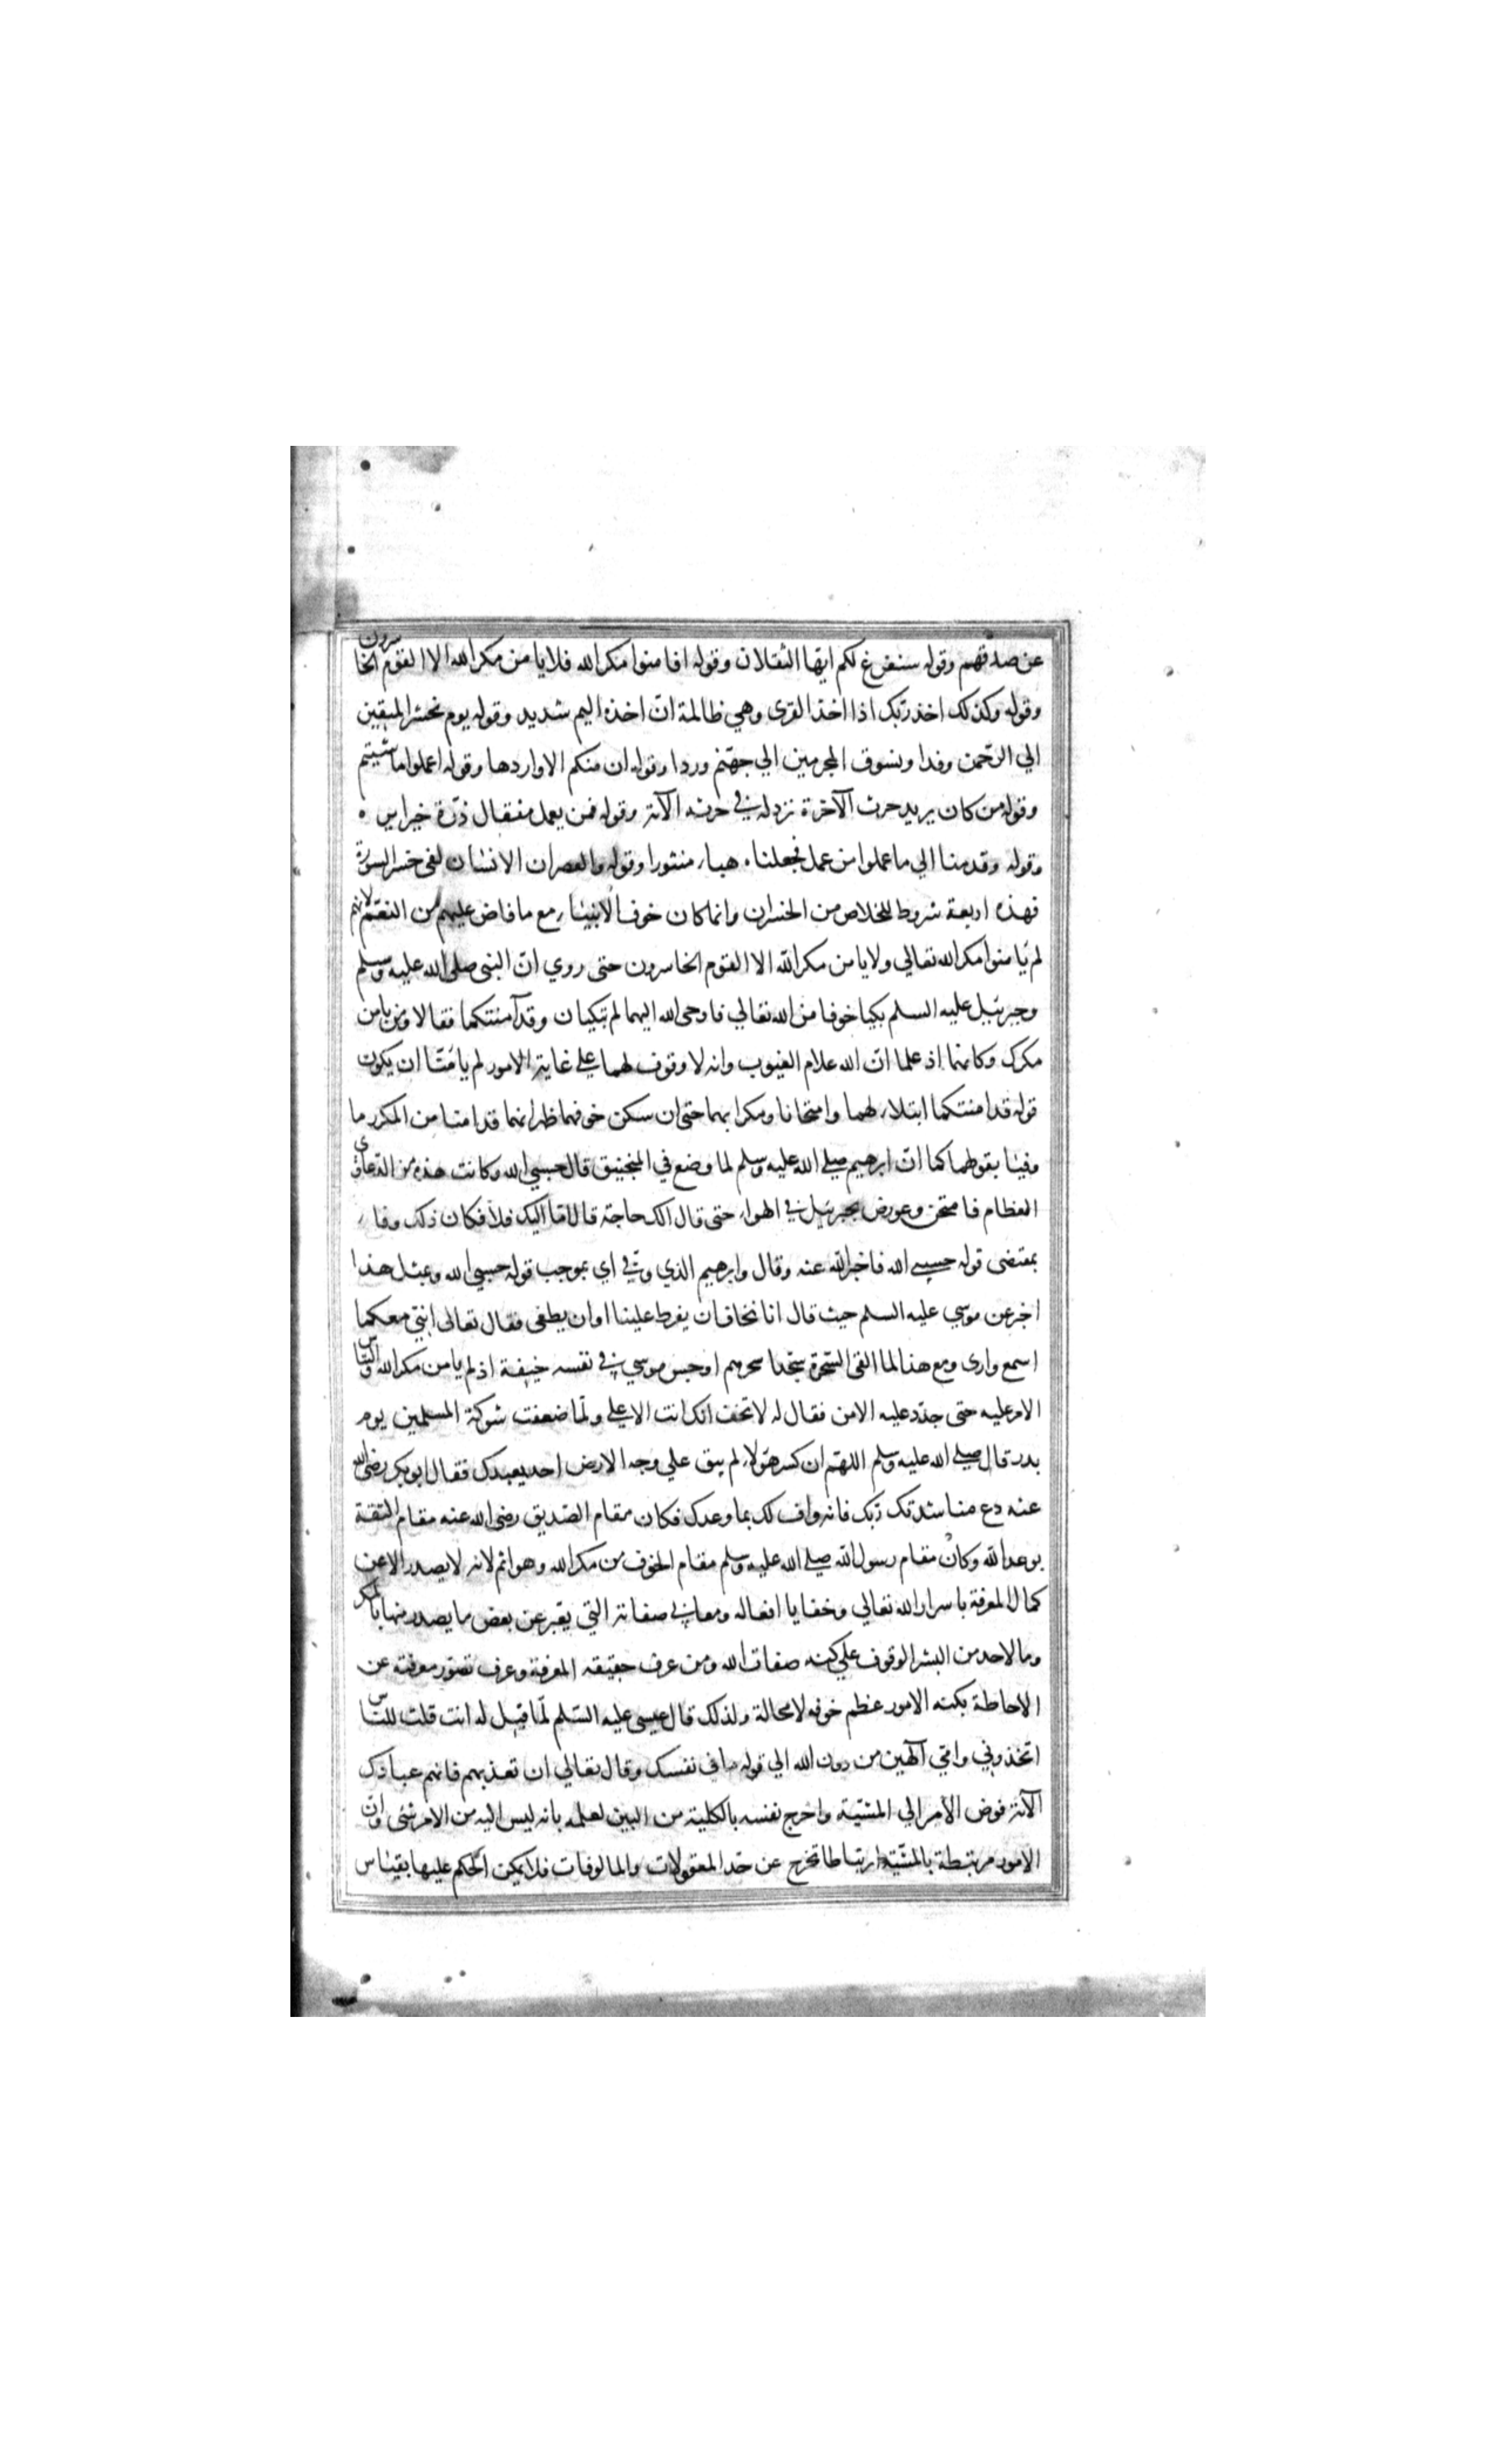 عن صدقهم وقوله سنفرغ لكم ايها الثقلان وقوله افامنوا مكر الله فلا يامن مكر الله الا القوم الخاسرون
وقوله وكذلك اخذ ربك اذا اخذ القرى وهي ظالمة ان اخذه اليم شديد وقوله يوم نحشر المتقين
الي الرحمن وفدا ونسوق المجرمين الي جهنم وردا وقوله ان منكم الا واردها وقوله اعملوا ما شئتم
وقوله من كان يريد حرث الآخرة نزد له في حرثه الآية وقوله فمن يعمل مثقال ذرة خيرا يره
وقوله وقدمنا الي ما عملوا من عمل فجعلناه هباء منثورا وقوله والعصر ان الانسان لفى خسر السورة
فهذه اربعة شروط للخلاص من الخسران وانما كان خوف الانبياء مع ما فاض عليهم من النعم لانهم
لم يامنوا مكر الله تعالي ولا يامن مكر الله الا القوم الخاسرون حتى روي ان النبى صلى الله عليه وسلم
وجبرئيل عليه السلم بكيا خوفا من الله تعالي فاوحى الله اليهما لم تبكيان وقد آمنتكما فقالا ومن يامن
مكرك وكانهما اذ علما ان الله علام الغيوب وانه لا وقوف لهما على غاية الامور لم يامنا ان يكون
قوله قد امنتكما ابتلاء لهما وامتحانا ومكرا بهما حتى ان سكن خوفهما ظهر انهما قد امنا من المكر وما
وفيا بقولهما كما ان ابرهيم صلى الله عليه وسلم لما وضع في المنجنيق قال حسبي الله وكانت هذه من الدعاوى
العظام فامتحن وعورض بجبرئيل في الهواء حتى قال الك حاجة قال اما اليك فلا فكان ذلك وفاء
بمقتضى قوله حسبي الله فاخبر الله عنه وقال وابرهيم الذي وفى اي بموجب قوله حسبي الله وبمثل هذا
اخبر عن موسي عليه السلم حيث قال اننا نخاف ان يفرط علينا او ان يطغى فقال تعالى اننى معكما
اسمع وارى ومع هذا لما القى السحرة سجدا سحرهم اوجس موسي في نفسه خيفة اذ لم يامن مكر الله والتباس
الامر عليه حتى جدد عليه الامن فقال له لا تخف انك انت الاعلى ولما ضعفت شوكة المسلمين يوم
بدر قال صلى الله عليه وسلم اللهم ان كسر هؤلاء لم يبق علي وجه الارض احد يعبدك فقال ابو بكر رضى الله
عنه دع مناشدتك ربك فانه واف لك بما وعدك فكان مقام الصديق رضى الله عنه مقام الثقة
بوعد الله وكان مقام رسول الله صلى الله عليه وسلم مقام الخوف من مكر الله وهو اتم لانه لا يصدر الا عن
كمال المعرفة باسرار الله تعالي وخفايا افعاله ومعاني صفاته التي يعبر عن بعض ما يصدر منها بالمكر
وما لاحد من البشر الوقوف علي كنه صفات الله ومن عرف حقيقة المعرفة وعرف تصور معرفته عن
الاحاطة بكنه الامور عظم خوفه لا محالة ولذلك قال عيسى عليه السلم لما قيل له انت قلت للناس
اتخذوني وامي آلهين من دون الله الي قوله ما في نفسك وقال تعالي ان تعذبهم فانهم عبادك
الآية فوض الامر الي المشية واخرج نفسه بالكلية من البين لعلمه بانه ليس اليه من الامر شئ وان
الامور مرتبطة بالمشية ارتباطا تخرج عن حد المعقولات والمالوفات فلا يمكن الحكم عليها بقياس